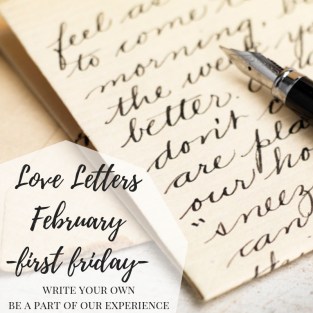 feel as
to come
morning,
the we
better.
don't c
are plea
our ho
"sneez
can
Love Letters
February
-first friday-
WRITE YOUR OWN
BE A PART OF OUR EXPERIENCE